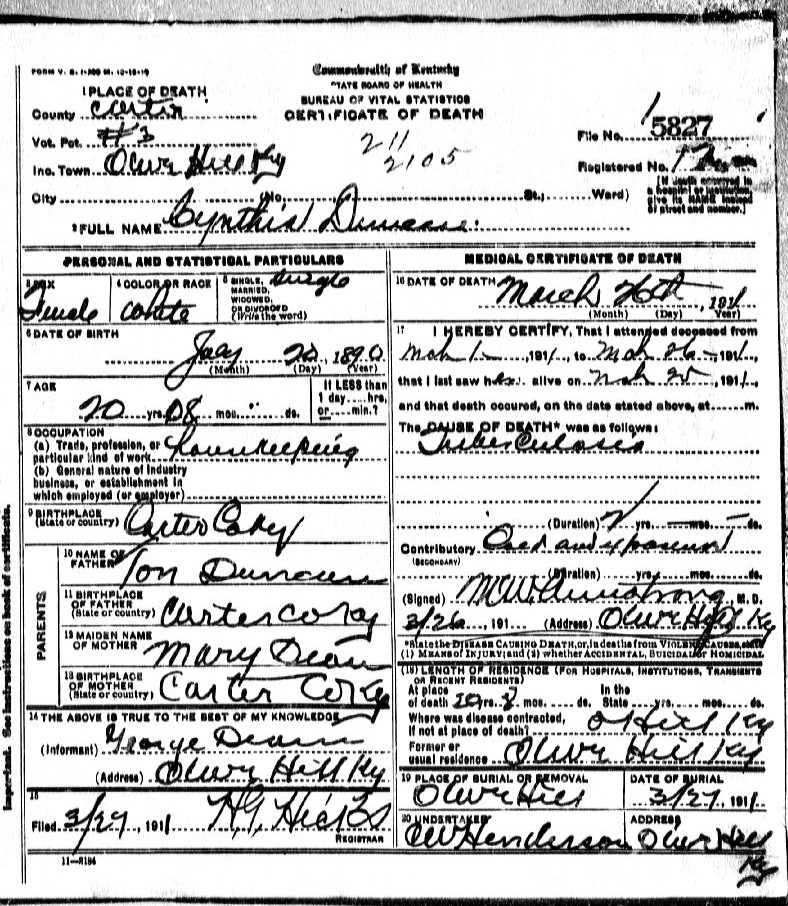 FORM V. S. 1-
Commonwealth of Kentucky
STATE BOARD OF HEALTH
BUREAU OF VITAL STATISTICS
CERTIFICATE OF DEATH
1 PLACE OF DEATH
County Carter
Vot. Pct. #3
Inc. Town Olive Hill Ky
City
No. St.; Ward)
211
2105
File No. 5827
Registered No.
[If death occurred in a hospital or institution, give its NAME instead of street and number.]
2 FULL NAME Cynthia Duncan
PERSONAL AND STATISTICAL PARTICULARS
3 SEX Female
4 COLOR OR RACE White
5 SINGLE, MARRIED, WIDOWED, OR DIVORCED (Write the word) Single
6 DATE OF BIRTH
July 22 1890
(Month) (Day) (Year)
7 AGE
20 yrs. 08 mos. ds.
If LESS than 1 day hrs. or min.?
8 OCCUPATION
(a) Trade, profession, or particular kind of work housekeeping
(b) General nature of industry business, or establishment in which employed (or employer)
9 BIRTHPLACE (State or country) Carter Co Ky
PARENTS
10 NAME OF FATHER Tom Duncan
11 BIRTHPLACE OF FATHER (State or country) Carter Co Ky
12 MAIDEN NAME OF MOTHER Mary
13 BIRTHPLACE OF MOTHER (State or country) Carter Co Ky
14 THE ABOVE IS TRUE TO THE BEST OF MY KNOWLEDGE
(Informant) George
(Address) Olive Hill Ky
15
Filed 3/27, 1911 H. G. Hicks
REGISTRAR
11—8184
MEDICAL CERTIFICATE OF DEATH
16 DATE OF DEATH March 26th, 1911
(Month) (Day) (Year)
17 I HEREBY CERTIFY, That I attended deceased from
Mch 1, 1911, to Mch 26, 1911,
that I last saw her alive on Mch 25, 1911,
and that death occured, on the date stated above, at m.
The CAUSE OF DEATH* was as follows:
Tuberculosis
(Duration) 2 yrs. mos. ds.
Contributory and exposure
(SECONDARY)
(Duration) yrs. mos. ds.
(Signed) M W Armstrong, M.D.
3/26, 191 (Address) Olive Hill Ky
*State the DISEASE CAUSING DEATH, or, in deaths from VIOLENT CAUSES, state
(1) MEANS OF INJURY; and (2) whether ACCIDENTAL, SUICIDAL or HOMICIDAL
(18) LENGTH OF RESIDENCE (FOR HOSPITALS, INSTITUTIONS, TRANSIENTS OR RECENT RESIDENTS)
At place of death 20 yrs. 8 mos. ds. In the State yrs. mos. ds.
Where was disease contracted, if not at place of death? O Hill Ky
Former or usual residence Olive Hill Ky
19 PLACE OF BURIAL OR REMOVAL Olive Hill
DATE OF BURIAL 3/27, 1911
20 UNDERTAKER Henderson
ADDRESS Olive Hill Ky
Important. See instructions on back of certificate.